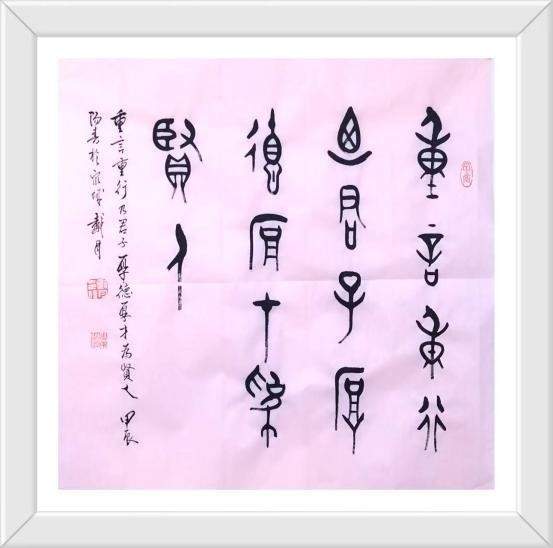 重言重行
迺君子厚
德厚才為
賢人
重言重行乃君子厚德厚才为贤人 甲辰
阳春於城戴月